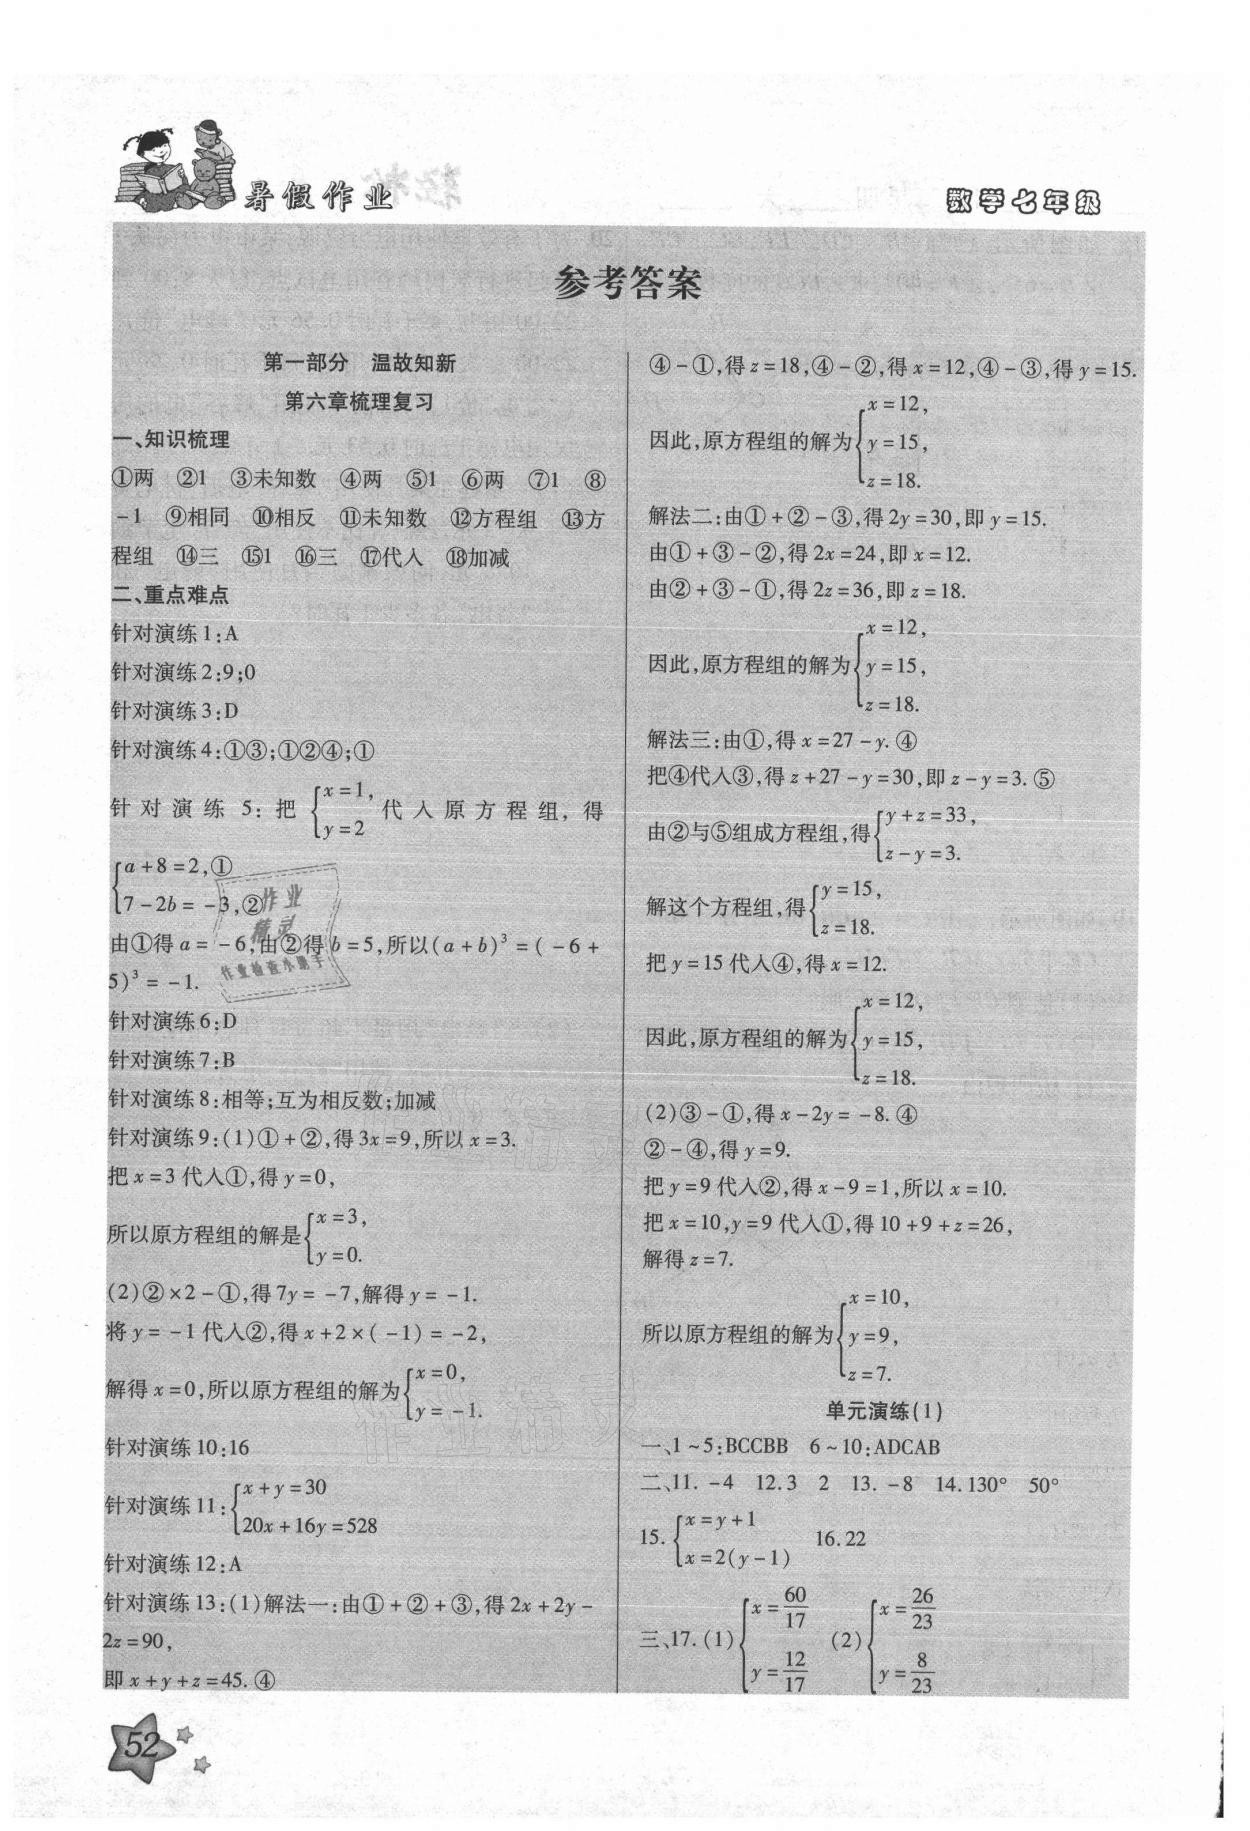 暑假作业
数学七年级
参考答案
第一部分 温故知新
第六章梳理复习
一、知识梳理
①两 ②1 ③未知数 ④两 ⑤1 ⑥两 ⑦1 ⑧
-1 ⑨相同 ⑩相反 ⑪未知数 ⑫方程组 ⑬方
程组 ⑭三 ⑮1 ⑯三 ⑰代入 ⑱加减
二、重点难点
针对演练1:A
针对演练2:9;0
针对演练3:D
针对演练4:①③;①②④;①
针对演练5:把{x=1, y=2 代入原方程组,得
{a+8=2,①
7-2b=-3,②
由①得a=-6,由②得b=5,所以(a+b)³=(-6+
5)³=-1.
针对演练6:D
针对演练7:B
针对演练8:相等;互为相反数;加减
针对演练9:(1)①+②,得3x=9,所以x=3.
把x=3代入①,得y=0,
所以原方程组的解是{x=3, y=0.
(2)②×2-①,得7y=-7,解得y=-1.
将y=-1代入②,得x+2×(-1)=-2,
解得x=0,所以原方程组的解为{x=0, y=-1.
针对演练10:16
针对演练11:{x+y=30 20x+16y=528
针对演练12:A
针对演练13:(1)解法一:由①+②+③,得2x+2y-
2z=90,
即x+y+z=45.④
④-①,得z=18,④-②,得x=12,④-③,得y=15.
因此,原方程组的解为{x=12, y=15, z=18.
解法二:由①+②-③,得2y=30,即y=15.
由①+③-②,得2x=24,即x=12.
由②+③-①,得2z=36,即z=18.
因此,原方程组的解为{x=12, y=15, z=18.
解法三:由①,得x=27-y.④
把④代入③,得z+27-y=30,即z-y=3.⑤
由②与⑤组成方程组,得{y+z=33, z-y=3.
解这个方程组,得{y=15, z=18.
把y=15代入④,得x=12.
因此,原方程组的解为{x=12, y=15, z=18.
(2)③-①,得x-2y=-8.④
②-④,得y=9.
把y=9代入②,得x-9=1,所以x=10.
把x=10,y=9代入①,得10+9+z=26,
解得z=7.
所以原方程组的解为{x=10, y=9, z=7.
单元演练(1)
一、1~5:BCCBB 6~10:ADCAB
二、11.-4 12.3 2 13.-8 14.130° 50°
15.{x=y+1 x=2(y-1) 16.22
三、17.(1){x=60/17 y=12/17 (2){x=26/23 y=8/23
作业
精灵
作业检查小助手
52